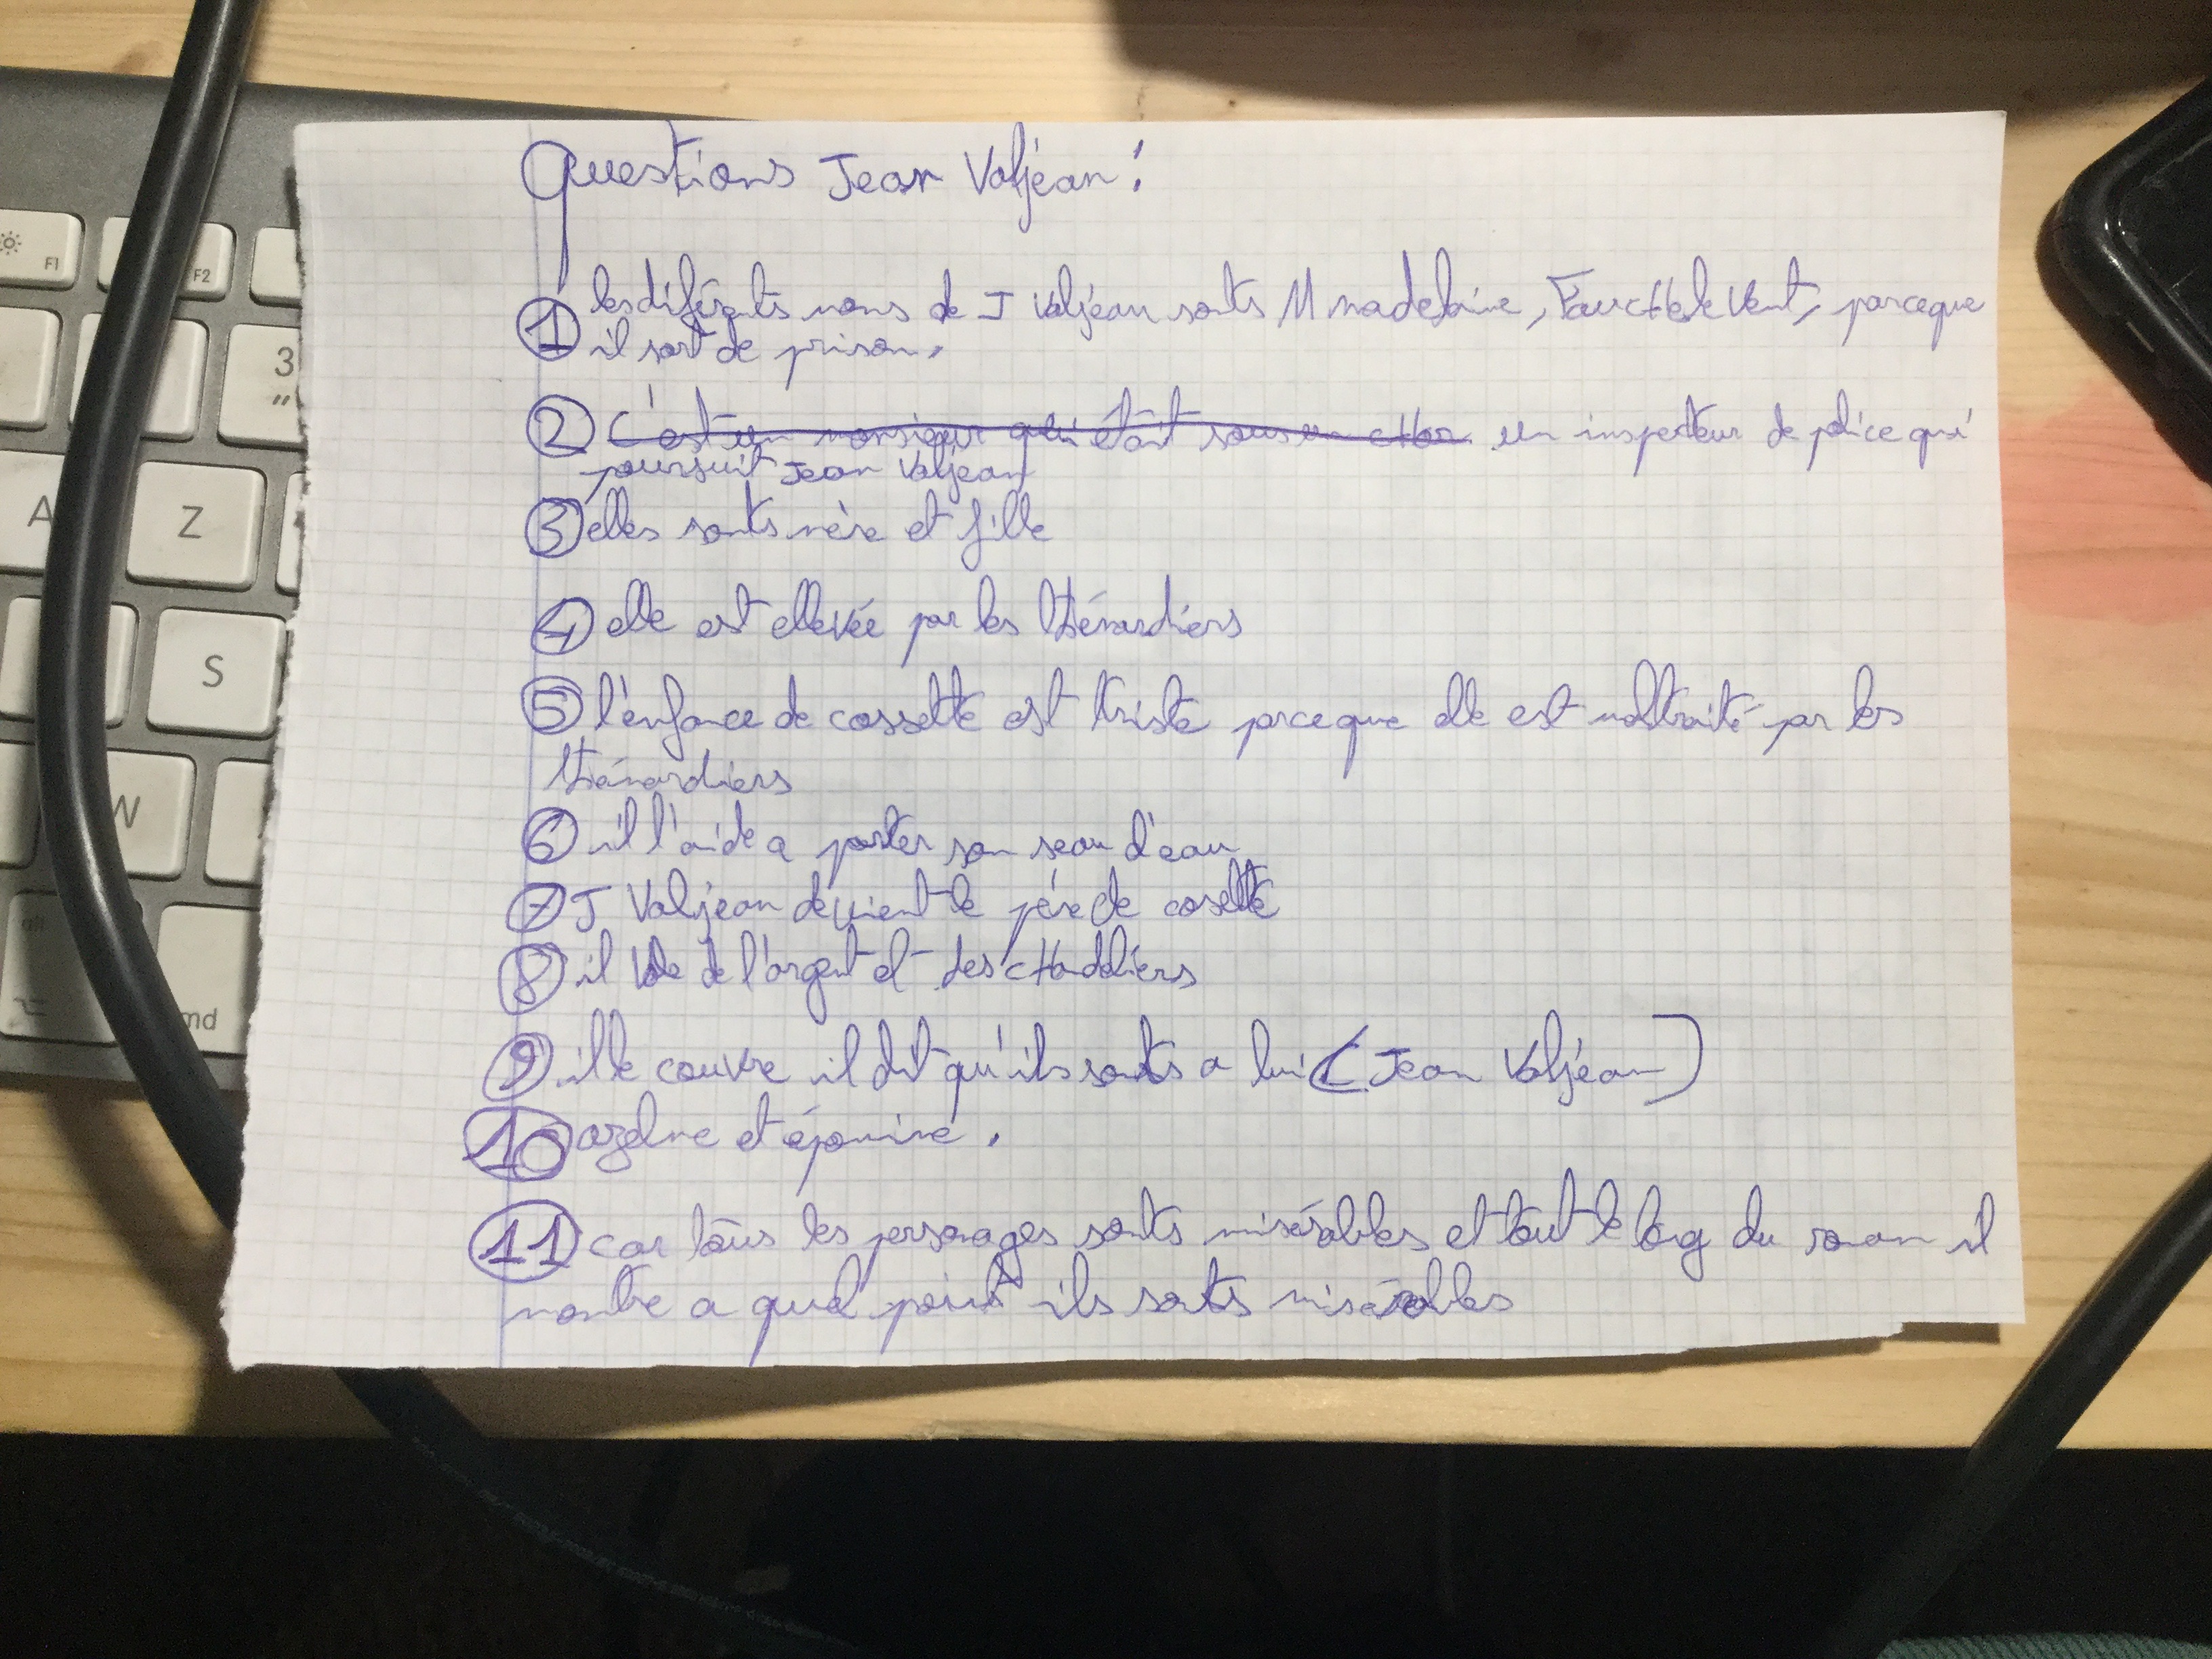 Questions Jean Valjean :
① les diférents noms de J Valjean sonts M madelaine, FaucHeleVent, parceque
il sort de prison.
② C'est un monsieur qui était sous un cHar un inspecteur de police qui
poursuit Jean Valjean
③ elles sonts mère et fille
④ elle est ellevée par les tHénardiers
⑤ l'enfance de cossette est triste parceque elle est maltraité par les
tHénardiers
⑥ il l'aide a porter son seau d'eau
⑦ J Valjean devient le père de cosette
⑧ il vole de l'argent et des cHandeliers
⑨ il le couvre il dit qu'ils sonts a lui (Jean Valjean)
⑩ azelme et éponine.
⑪ car tous les personages sonts misérables et tout le long du roman il
montre a quel point ils sonts misérables
F1
F2
3
"
A
Z
S
W
alt
md